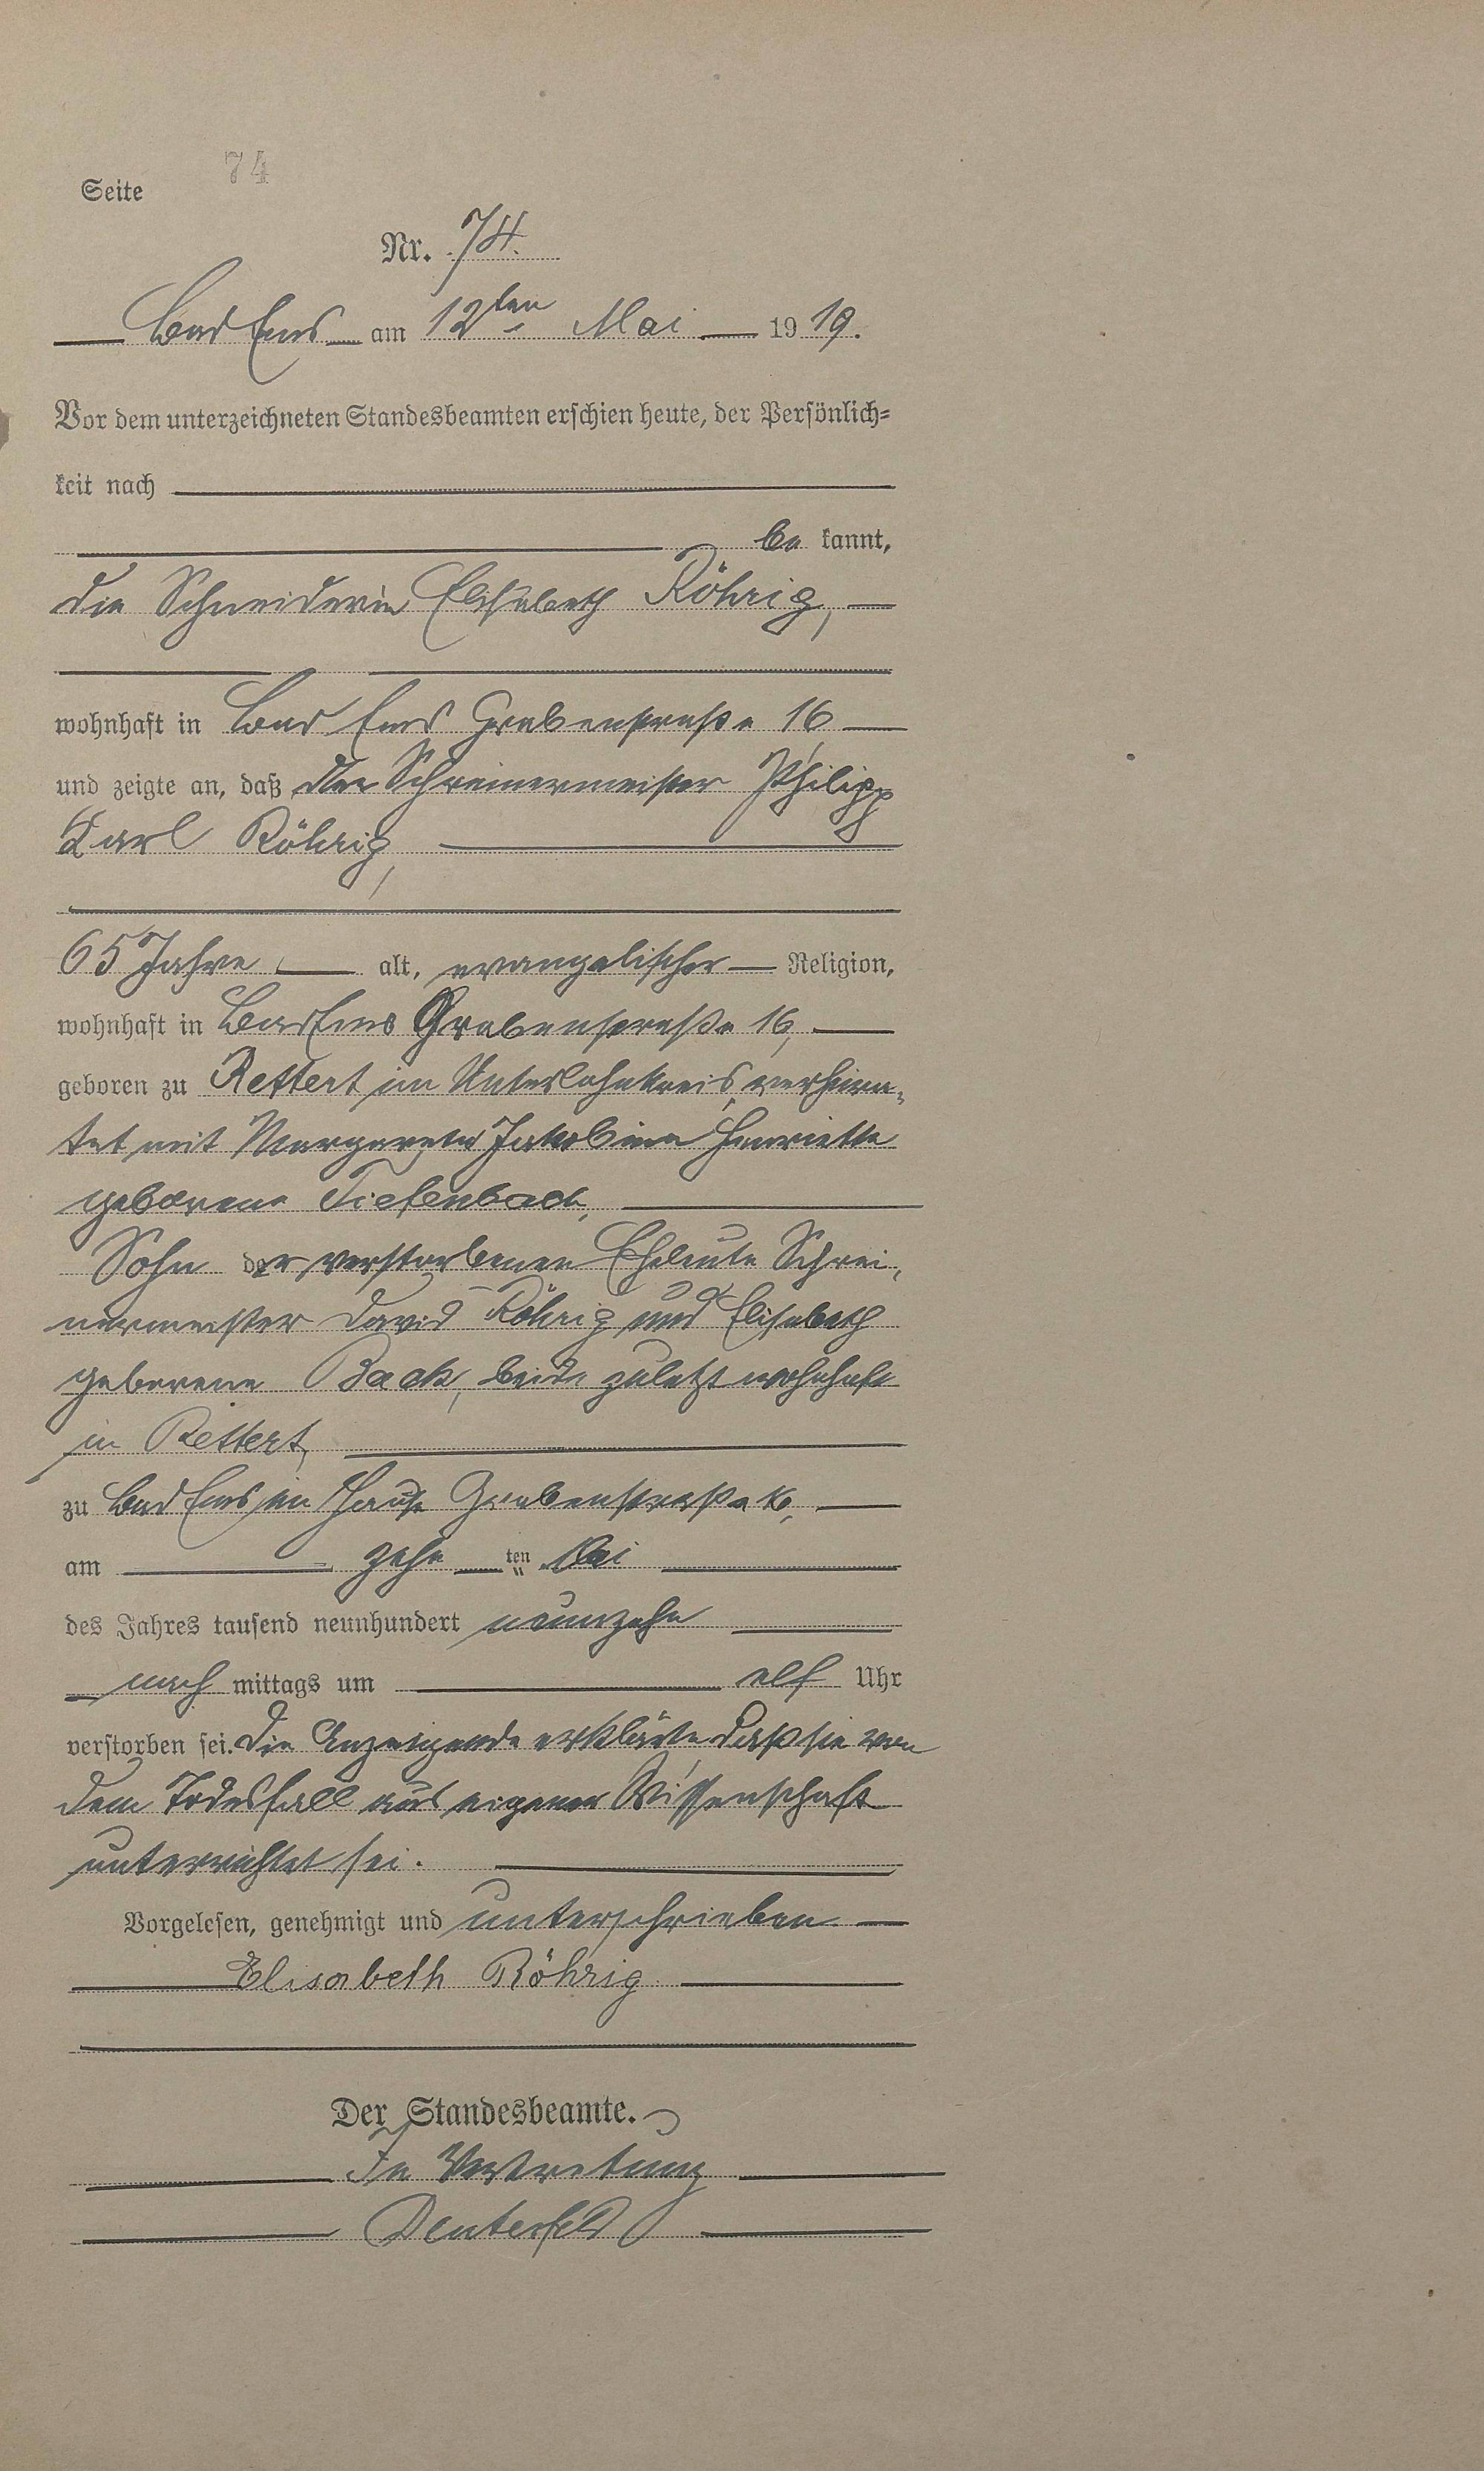 74
Seite
Nr. 74.
Bad Ems am 12ten Mai 1919.
Vor dem unterzeichneten Standesbeamten erschien heute, der Persönlich-
keit nach
be kannt,
die Schneiderin Elisabeth Röhrig,
wohnhaft in Bad Ems Grabenstraße 16
und zeigte an, daß der Schreinermeister Philipp
Karl Röhrig,
65 Jahre alt, evangelischer Religion,
wohnhaft in Bad Ems Grabenstraße 16,
geboren zu Rettert im Unterlahnkreis, verheira-
tet mit Margareta Jakobina Henriette
geborene Tiefenbach,
Sohn der verstorbenen Eheleute Schrei-
nermeister David Röhrig und Elisabeth
geborene Back, beide zuletzt wohnhaft
in Rettert,
zu Bad Ems im Hause Grabenstraße 16,
am zehnten Mai
des Jahres tausend neunhundert neunzehn
nach mittags um elf Uhr
verstorben sei. Die Anzeigende erklärte daß sie von
dem Todesfall aus eigener Wissenschaft
unterrichtet sei.
Vorgelesen, genehmigt und unterschrieben
Elisabeth Röhrig
Der Standesbeamte.
In Vertretung